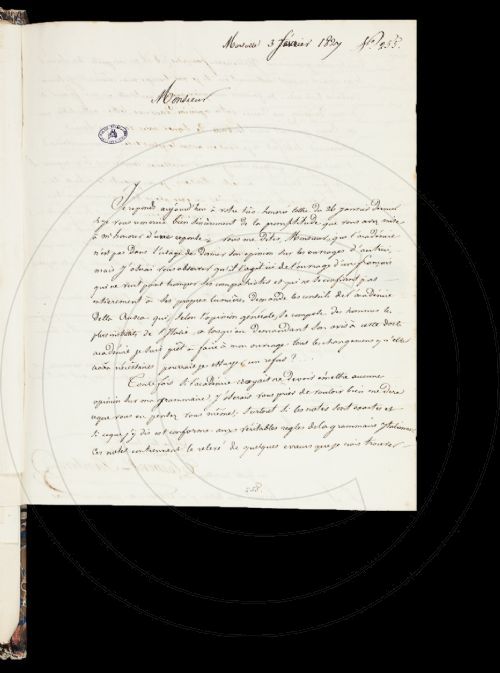 Marseille 3 février 1827 N.° 255.
Monsieur
Je réponds aujourd'hui à votre très honorée lettre du 26 janvier dernier
je vous remercie bien sincèrement de la promptitude que vous avez mise
à m'honorer d'une réponse. vous me dites, Monsieur, que l'académie
n'est pas dans l'usage de donner son opinion sur les ouvrages d'autrui,
mais j'oserai vous observer qu'il s'agit ici de l'ouvrage d'un français
qui ne veut point tromper ses compatriotes et qui ne se confiant pas
entièrement à ses propres lumières, demande les conseils de l'académie
Della Crusca qui, selon l'opinion générale, se compose des hommes les
plus de l'Italie. or lorsqu'en demandant son avis à cette docte
académie je suis prêt à faire à mon ouvrage tous les changemens qu'elle
nécessaires pourrais-je essuyer un refus?
Toutefois si l'académie croyait ne devoir émettre aucune
opinion sur ma grammaire, j'oserais vous prier de vouloir bien me dire
ce que vous en pensez vous même, surtout si les notes sont exactes et
si ce que j'y dis est conforme aux véritables règles de la grammaire Italienne.
Ces notes contiennent le relevé de quelques erreurs que je crois trouver
258.